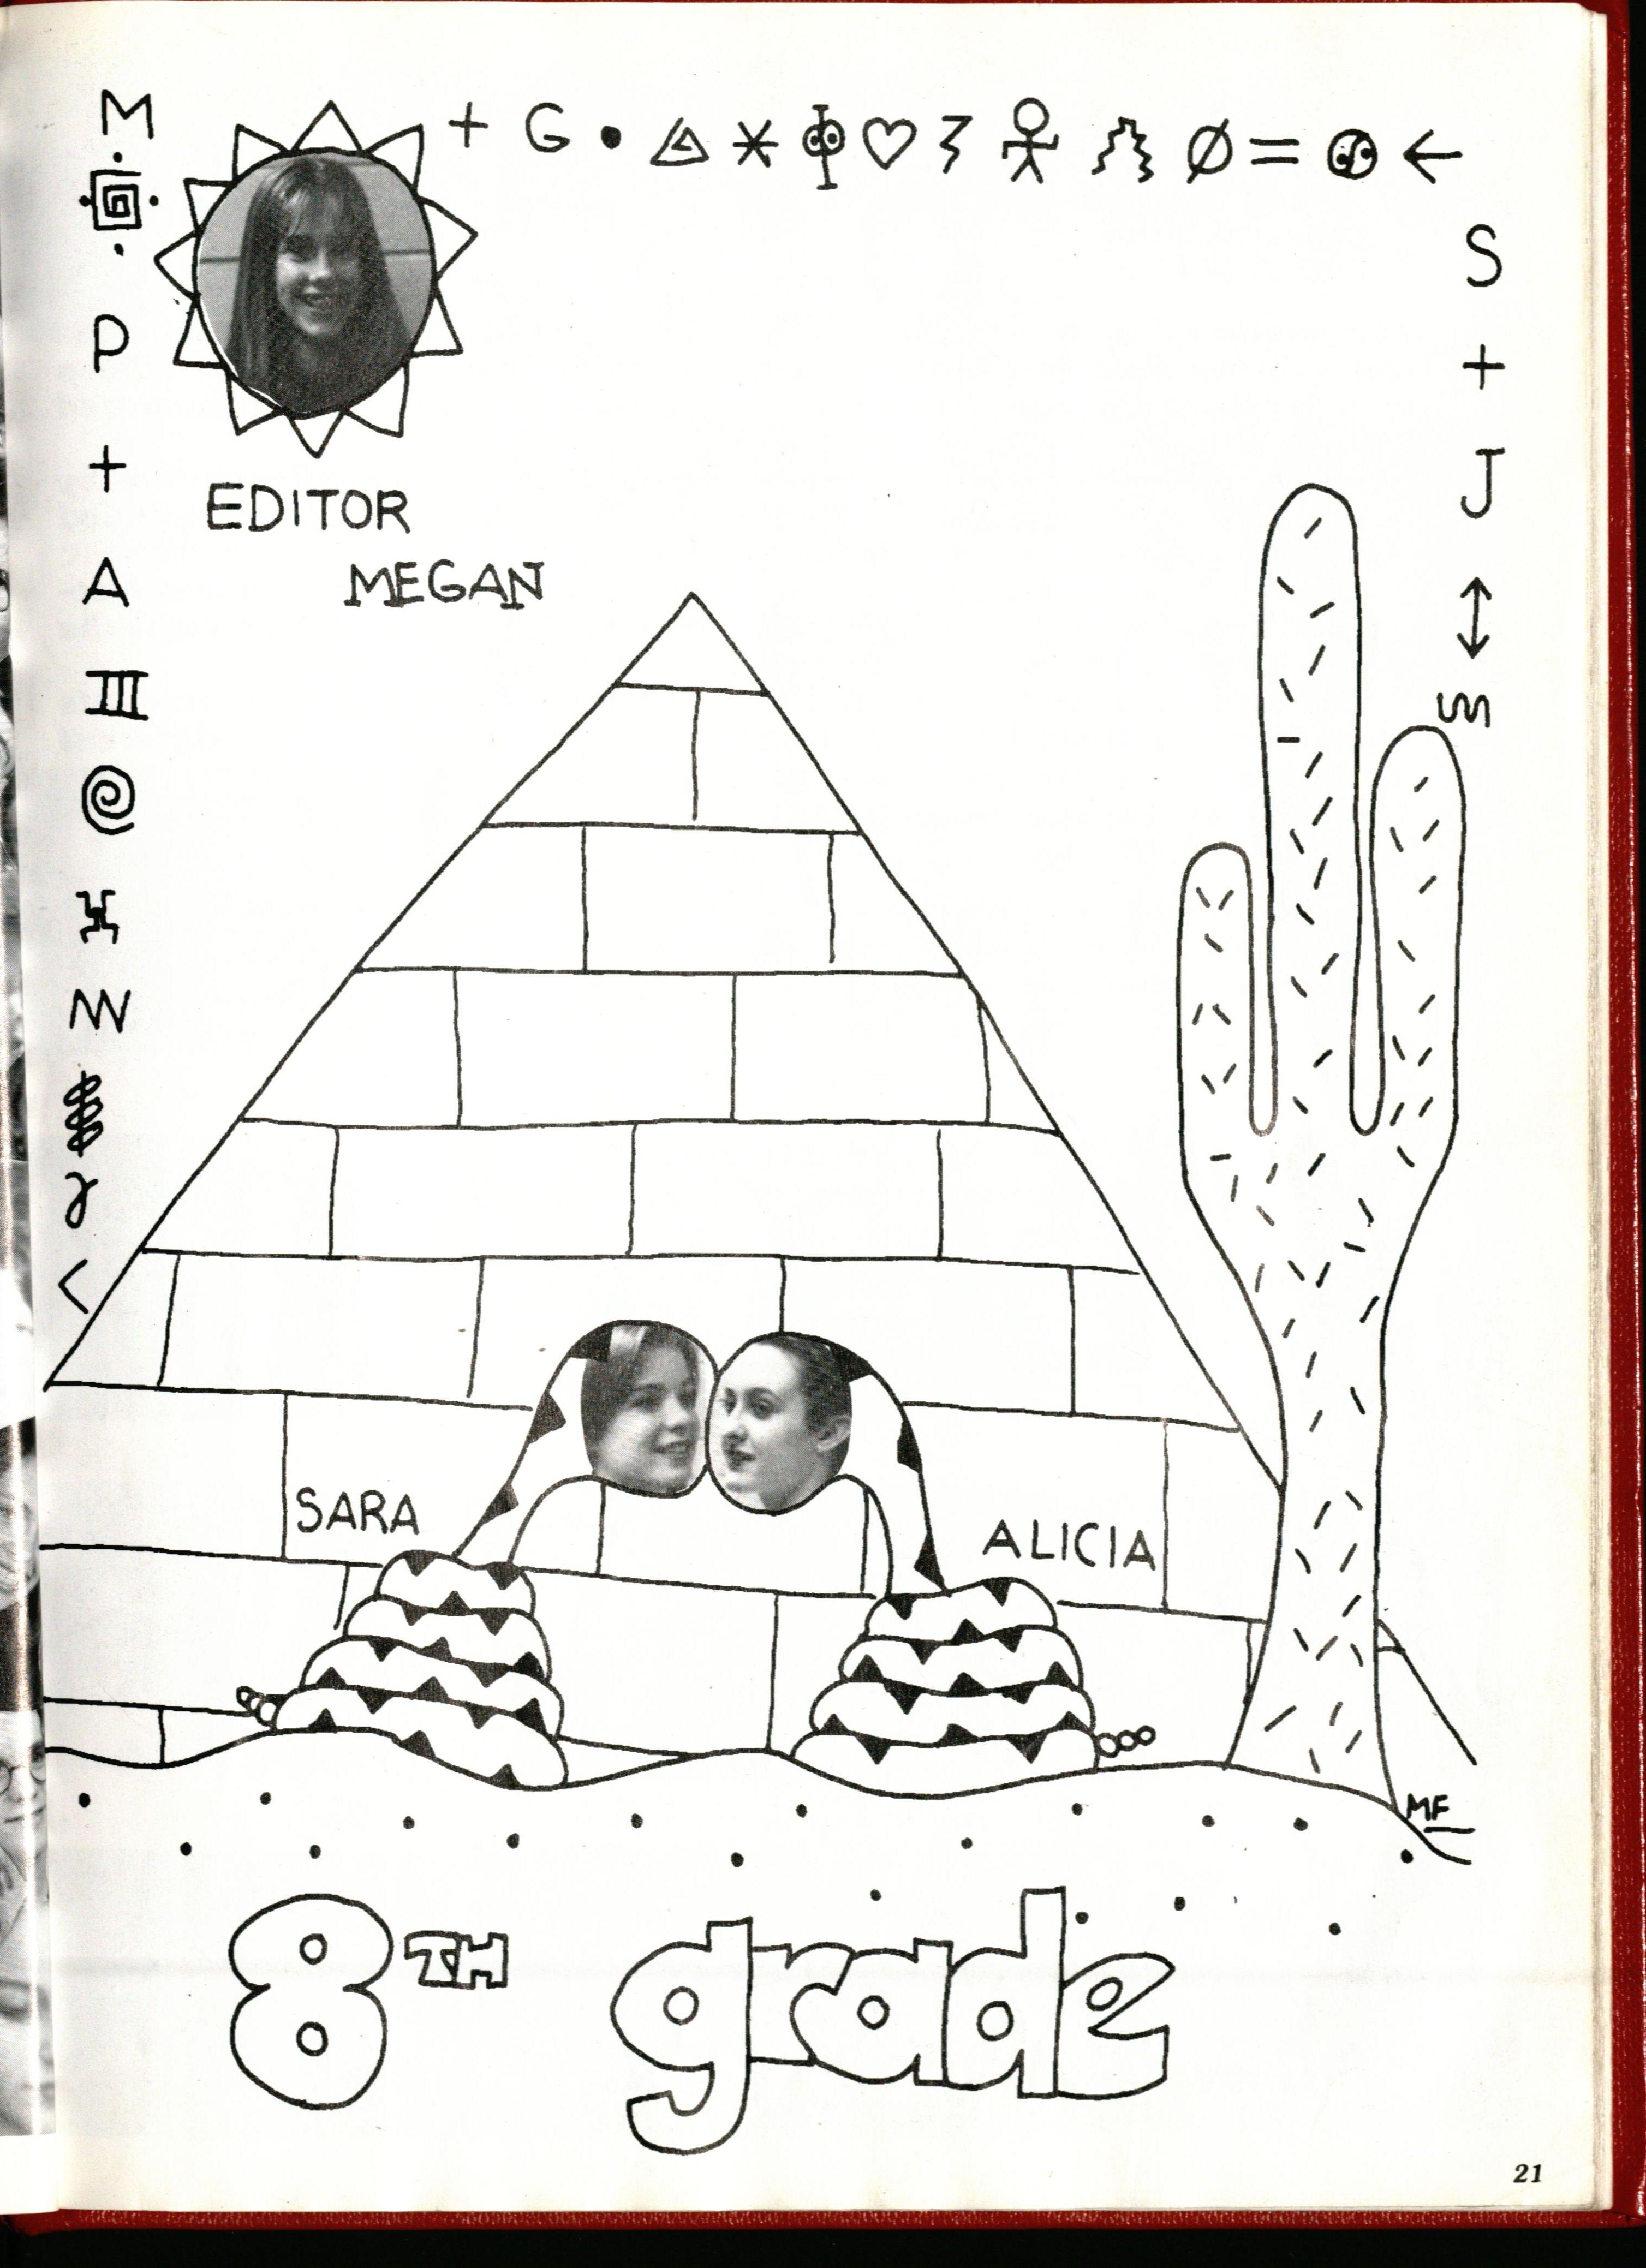 M
+ G • * ♡ Ø = ←
P
+
A
S
+
J
↔
EDITOR
MEGAN
SARA
ALICIA
MF
8TH grade
21